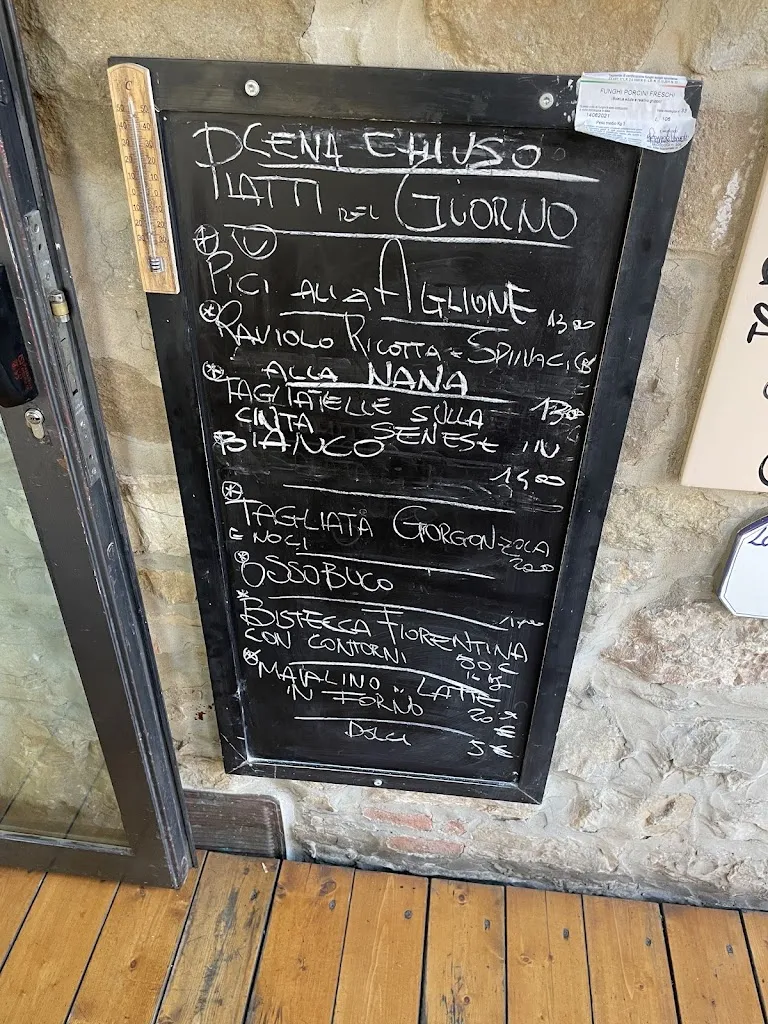 FUNGHI PORCINI FRESCHI
14082021
CENA CHIUSO
PIATTI DEL GIORNO
PICI ALL'AGLIONE 13,00
RAVIOLO RICOTTA E SPINACI
ALLA NANA 13,00
TAGLIATELLE SULLA
CINTA SENESE IN
BIANCO
14,00
TAGLIATA GORGONZOLA
E NOCI 20,00
OSSOBUCO
BISTECCA FIORENTINA
CON CONTORNI 50 €
MAIALINO LATTE
IN FORNO 20 €
DOLCI 5 €